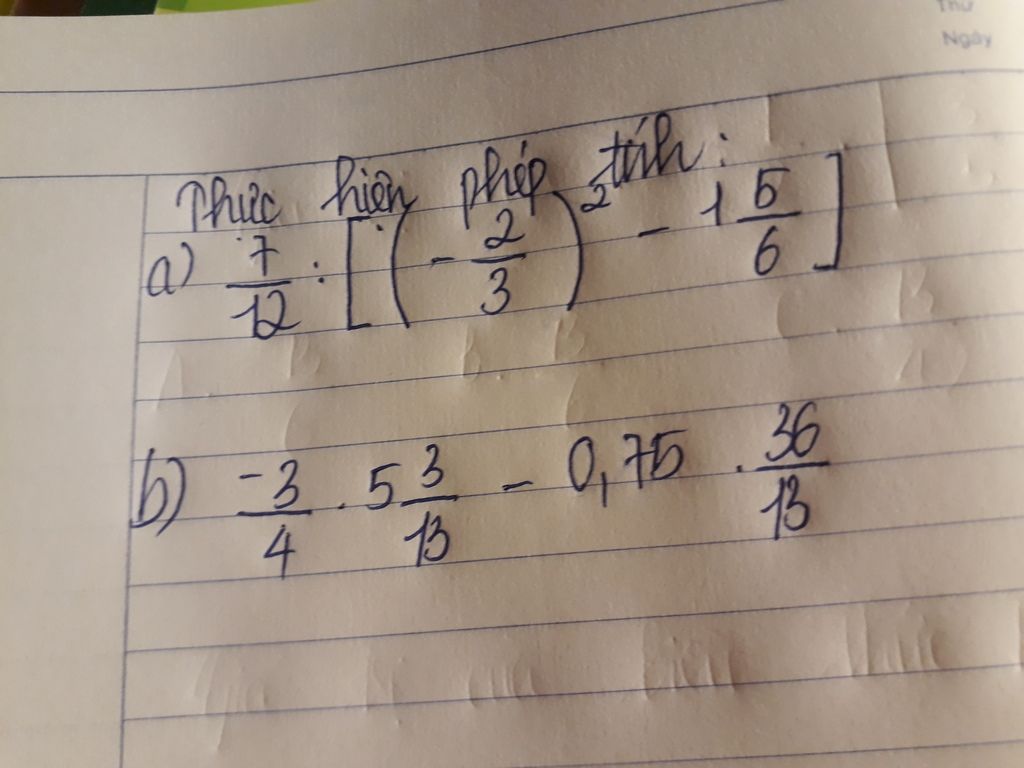 Thứ
Ngày
Thực hiện phép tính:
a) 7/12 : [(-2/3)² - 1 5/6]
b) -3/4 . 5 3/13 - 0,75 . 36/13